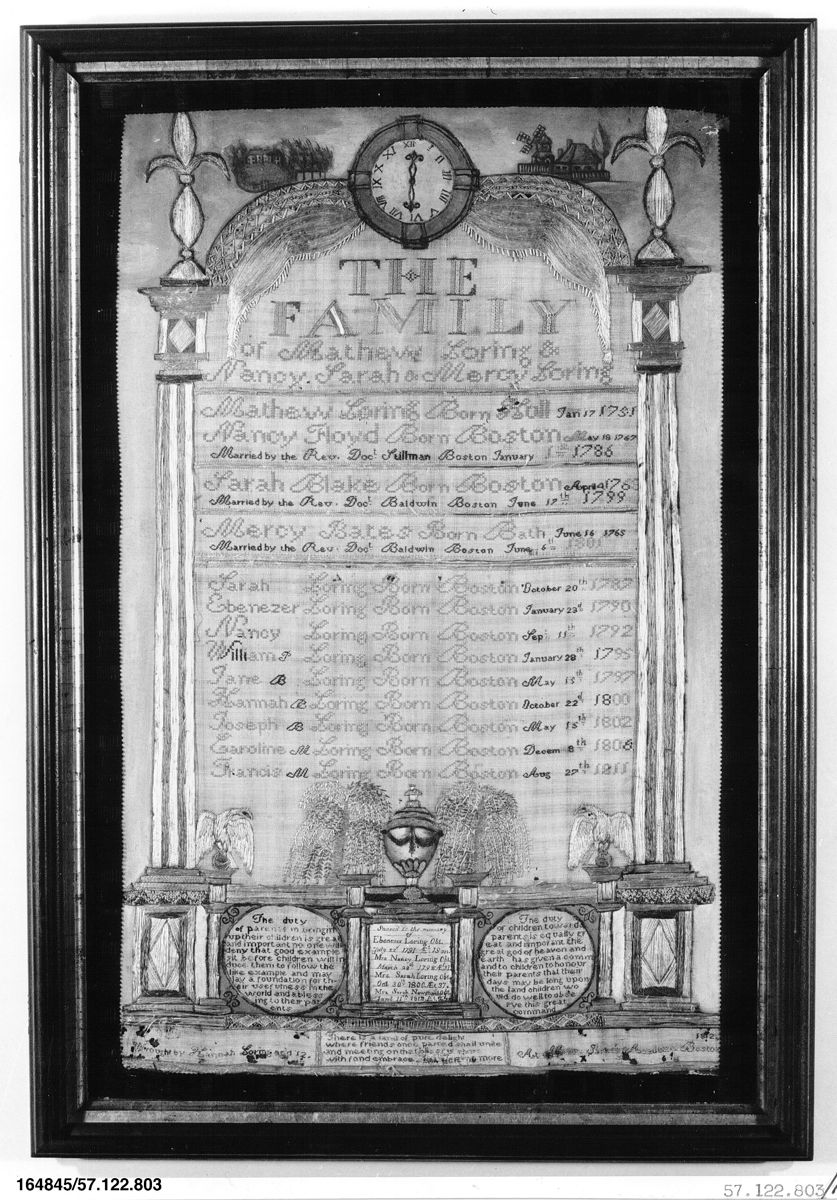 XII I II III IIII V VI VII VIII IX X XI
THE
FAMILY
of Mathew Loring &
Nancy, Sarah & Mercy Loring
Mathew Loring Born Hull Jan 17 1751
Nancy Floyd Born Boston May 18 1767
Married by the Rev. Doct. Stillman Boston January 1786
Sarah Blake Born Boston April 4 1763
Married by the Rev. Doct. Baldwin Boston June 17th 1799
Mercy Bates Born Bath June 16 1765
Married by the Rev. Doct. Baldwin Boston June 6th 1801
Sarah Loring Born Boston October 20th 1787
Ebenezer Loring Born Boston January 23d 1790
Nancy Loring Born Boston Sep. 11th 1792
William P Loring Born Boston January 28th 1795
Jane B Loring Born Boston May 13th 1797
Hannah B Loring Born Boston October 22d 1800
Joseph B Loring Born Boston May 15th 1802
Caroline M Loring Born Boston Decem 8th 1808
Francis M Loring Born Boston Aug 27th 1811
The duty
of parents in bringin
up their children is great
and important no one will
deny that good example
set before children will in
duce them to follow the
like example and may
lay a foundation for th
eir usefulness in the
world and a bless
ing to their par
ents
to the memory
of
Ebenezer Loring Obt.
Mrs. Nancy Loring Obt.
March
Mrs. Sarah Loring Obt.
Oct 30th 1800 Æ 37.
Mrs. Sarah
April 11th
The duty
of children towards
parents is equally gr
eat and important the
great god of heaven and
earth has given a comm
and to children to honour
their parents that their
days may be long upon
the land children wo
uld do well to obse
rve this great
command
There is a land of pure delight
where friends once parted shall unite
and meeting on the
with fond embrace more
Wrought by Hannah Loring aged 12
1812
At Academy Boston
164845/57.122.803
57.122.803